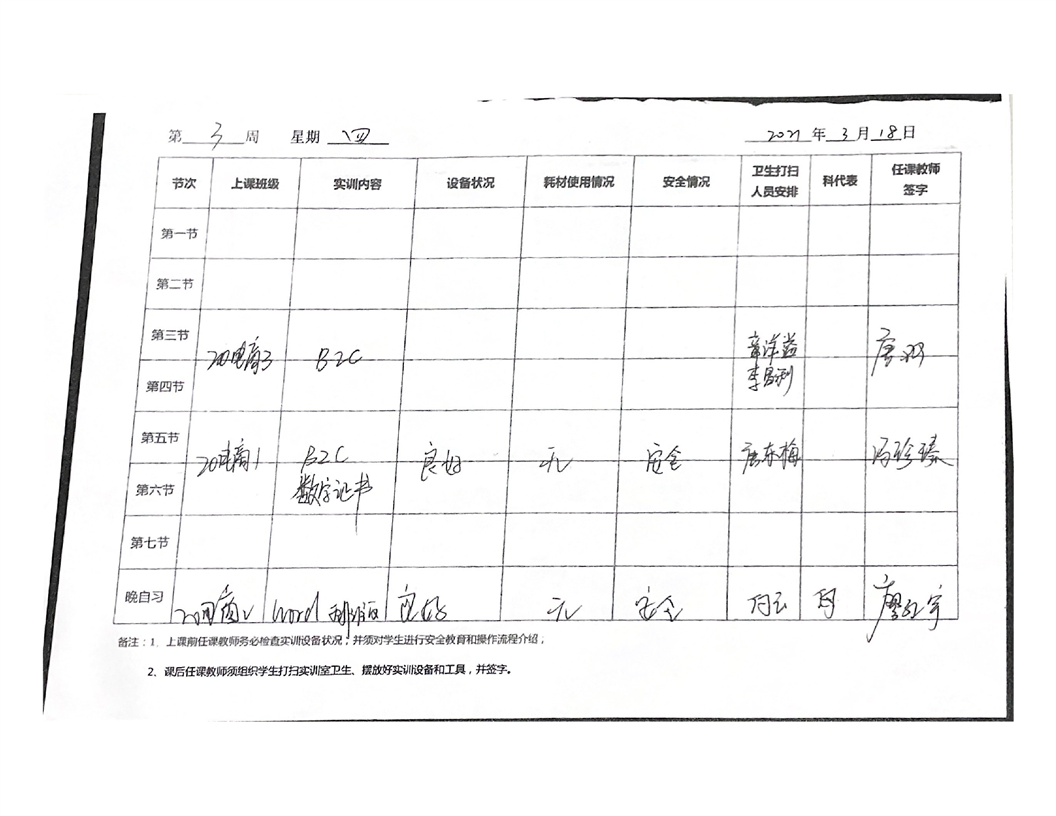 第 3 周 星期 四 2021 年 3 月 18 日
节次 上课班级 实训内容 设备状况 耗材使用情况 安全情况 卫生打扫人员安排 科代表 任课教师签字
第一节
第二节
第三节
20电商3 B2C
第四节
第五节
20电商1 B2C 良好 无 安全 唐东梅 冯珍臻
数字证书
第六节
第七节
晚自习 20电商2 word 排版 良好 无 安全
备注：1、上课前任课教师务必检查实训设备状况，并须对学生进行安全教育和操作流程介绍；
2、课后任课教师须组织学生打扫实训室卫生、摆放好实训设备和工具，并签字。